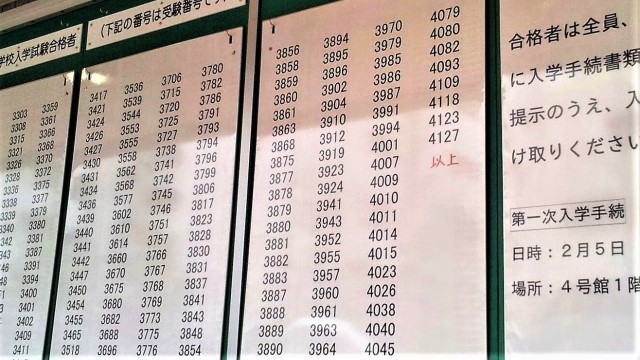 学校入学試験合格者
(下記の番号は受験番号です
3303
3308
3315
3321
3326
3328
3336
3339
3340
3342
3359
3361
3366
3368
3370
3372
3375
3377
3379
3380
3391
3394
3400
3401
3409
3411
3417
3421
3424
3426
3427
3430
3431
3434
3436
3439
3440
3441
3442
3447
3450
3454
3455
3465
3518
3536
3539
3544
3553
3555
3558
3562
3568
3577
3602
3610
3614
3660
3670
3675
3680
3682
3688
3696
3706
3715
3720
3725
3727
3738
3741
3742
3745
3746
3751
3757
3766
3767
3768
3769
3773
3775
3776
3780
3782
3786
3793
3794
3796
3799
3806
3817
3823
3828
3830
3831
3837
3841
3843
3848
3854
3856
3858
3859
3860
3861
3863
3868
3875
3877
3878
3879
3880
3881
3882
3883
3887
3888
3889
3890
3894
3895
3896
3902
3904
3910
3912
3919
3923
3924
3941
3943
3952
3955
3957
3960
3961
3963
3964
3970
3979
3985
3986
3987
3991
3994
4001
4007
4009
4010
4011
4014
4015
4023
4026
4038
4040
4045
4079
4080
4082
4093
4109
4118
4123
4127
以上
合格者は全員、
に入学手続書類
提示のうえ、入
け取りください
第一次入学手続
日時：2月5日
場所：4号館1階